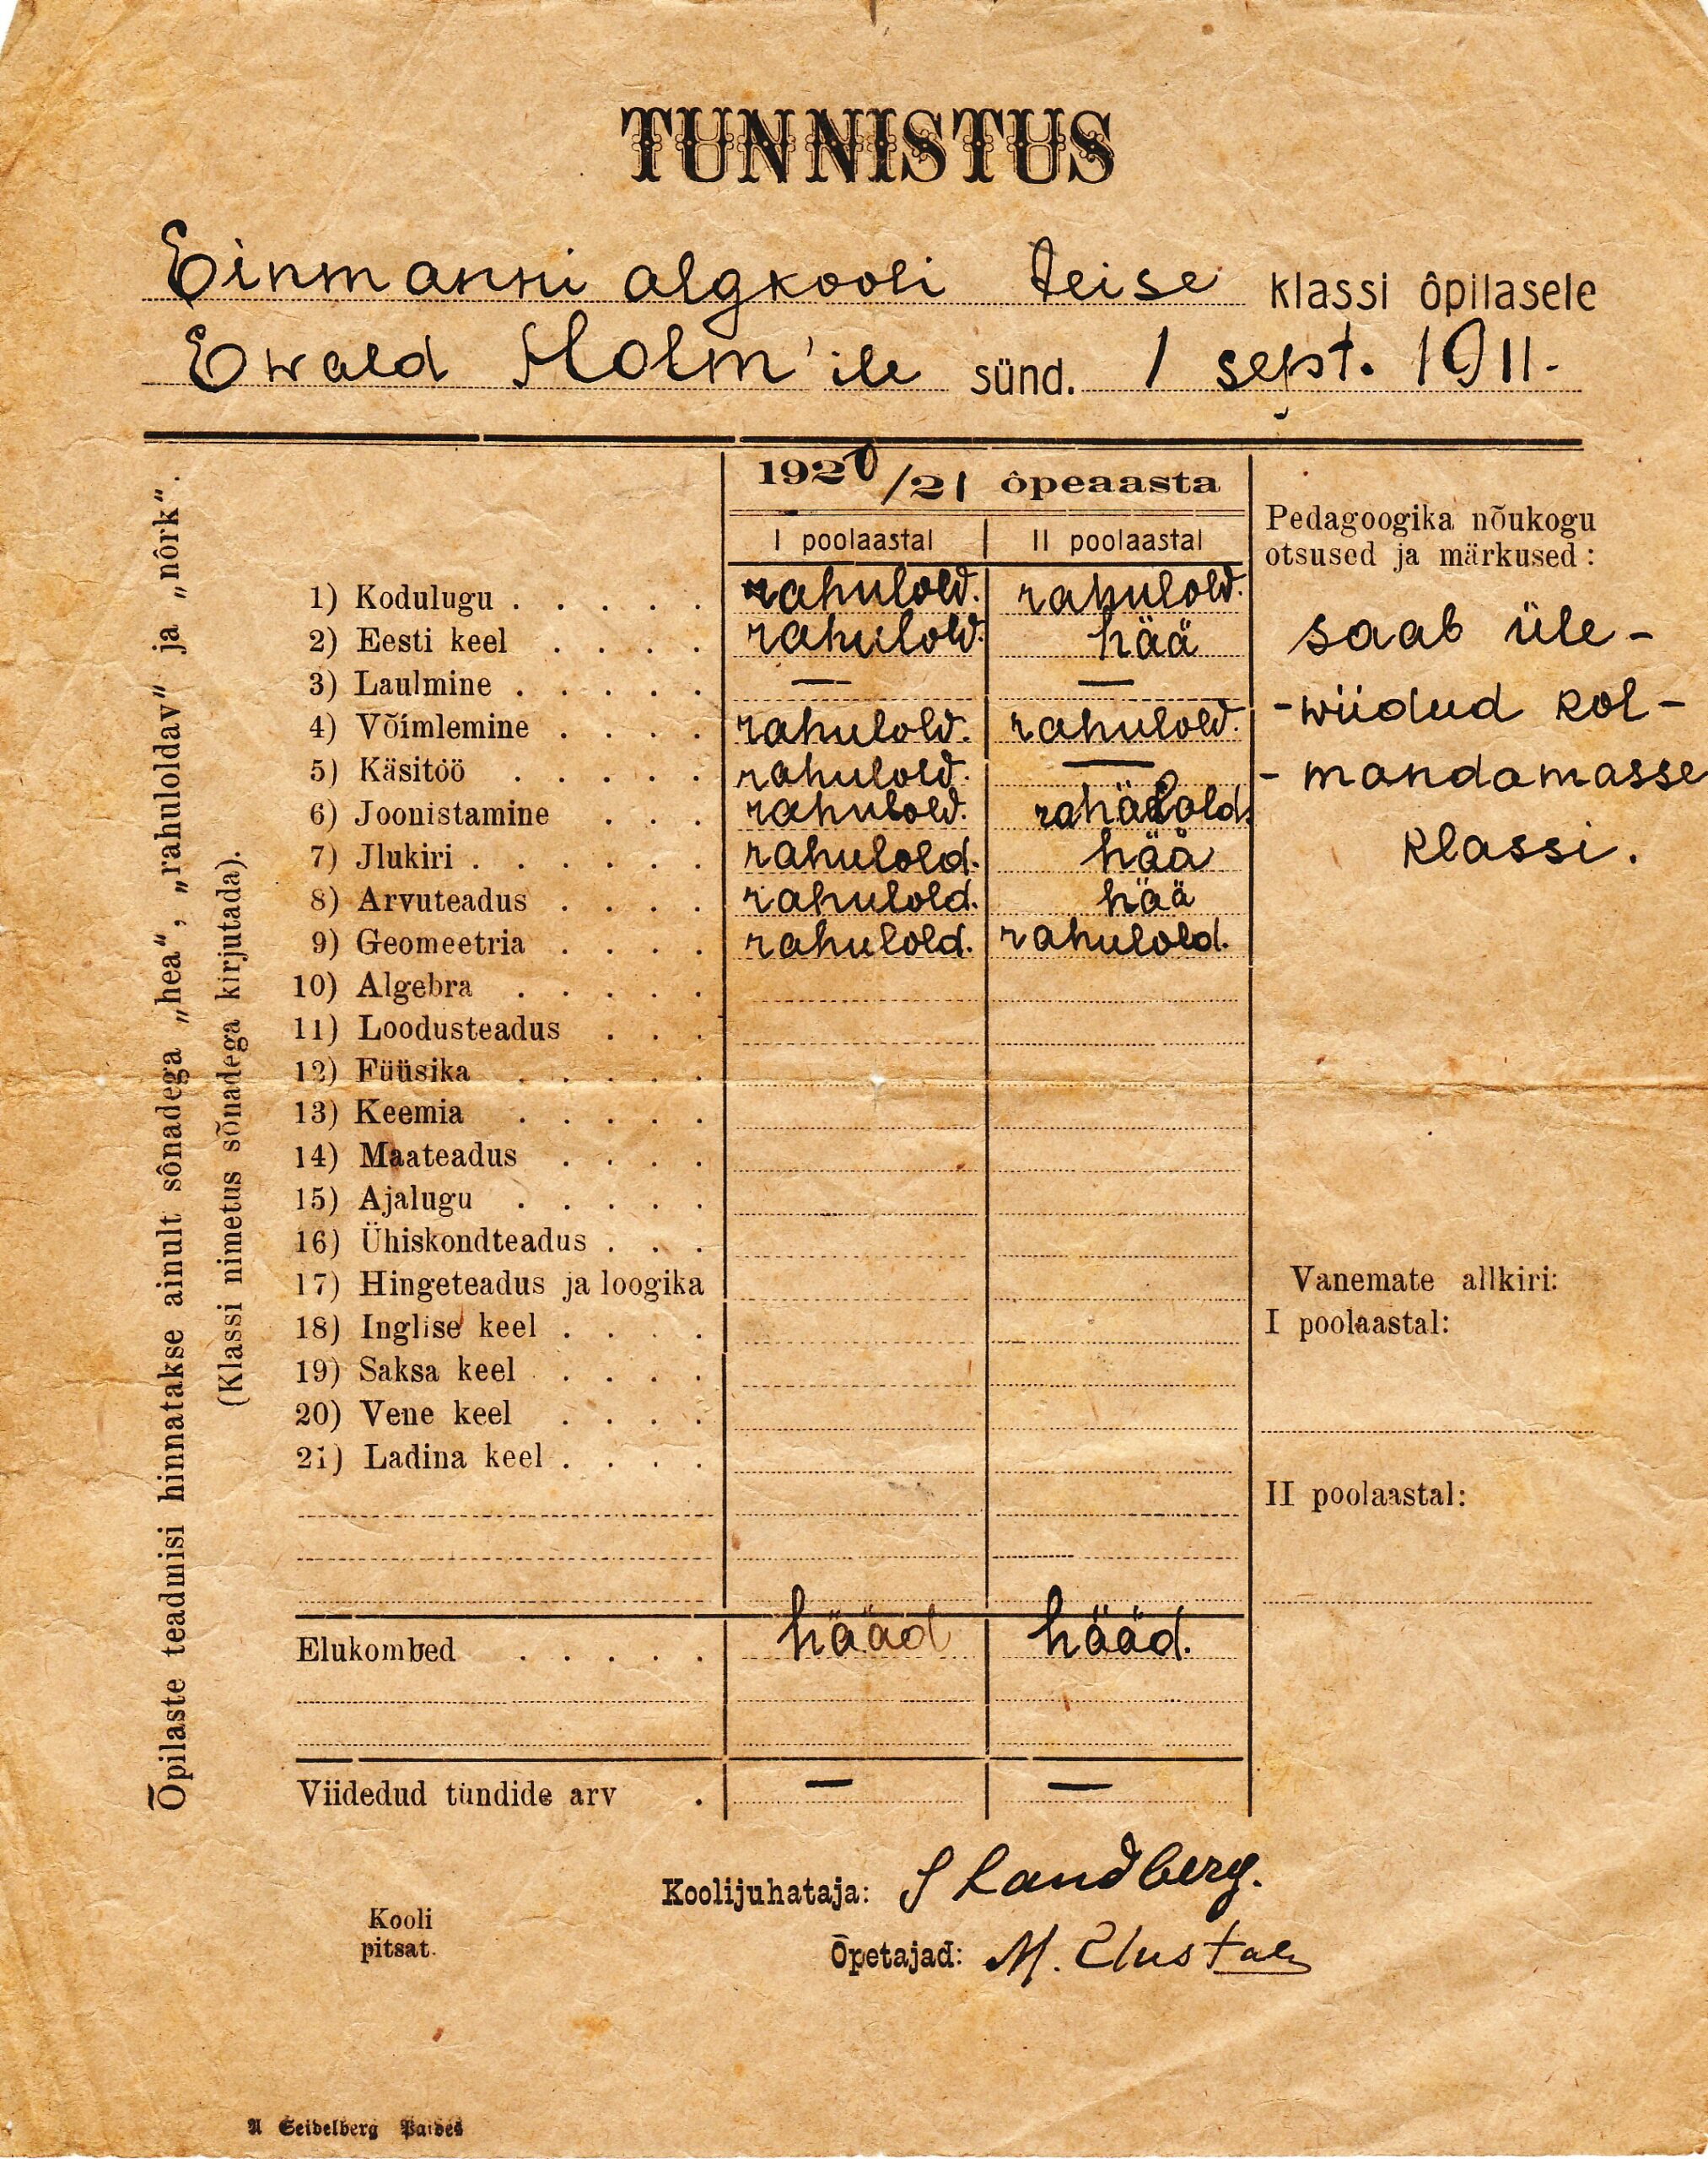 TUNNISTUS
Einmanni algkooli teise klassi ôpilasele
Ewald Holm'ile sünd. 1 sept. 1911.
1920/21 ôpeaasta
I poolaastal II poolaastal
Pedagoogika nõukogu
otsused ja märkused:
1) Kodulugu . . . . . rahulold. rahulold.
2) Eesti keel . . . . rahulold. hää
3) Laulmine . . . . . — —
4) Võimlemine . . . . rahulold. rahulold.
5) Käsitöö . . . . . rahulold. —
6) Joonistamine . . . rahulold. rahulold.
7) Jlukiri . . . . . . rahulold. hää
8) Arvuteadus . . . . rahulold. hää
9) Geomeetria . . . . rahulold. rahulold.
10) Algebra . . . . .
11) Loodusteadus . . .
12) Füüsika . . . . .
13) Keemia . . . . .
14) Maateadus . . . .
15) Ajalugu . . . . .
16) Ühiskondteadus . . .
17) Hingeteadus ja loogika
18) Inglise keel . . . .
19) Saksa keel . . . .
20) Vene keel . . . .
21) Ladina keel . . . .
Elukombed . . . . . hääd hääd.
Viidedud tündide arv . — —
saab üle-
-wiidud kol-
- mandamasse
klassi.
Vanemate allkiri:
I poolaastal:
II poolaastal:
Õpilaste teadmisi hinnatakse ainult sônadega „hea", „rahuloldav" ja „nôrk".
(Klassi nimetus sõnadega kirjutada).
Koolijuhataja: Landberg.
Õpetajad: M.
Kooli
pitsat.
A Seidelberg Paides